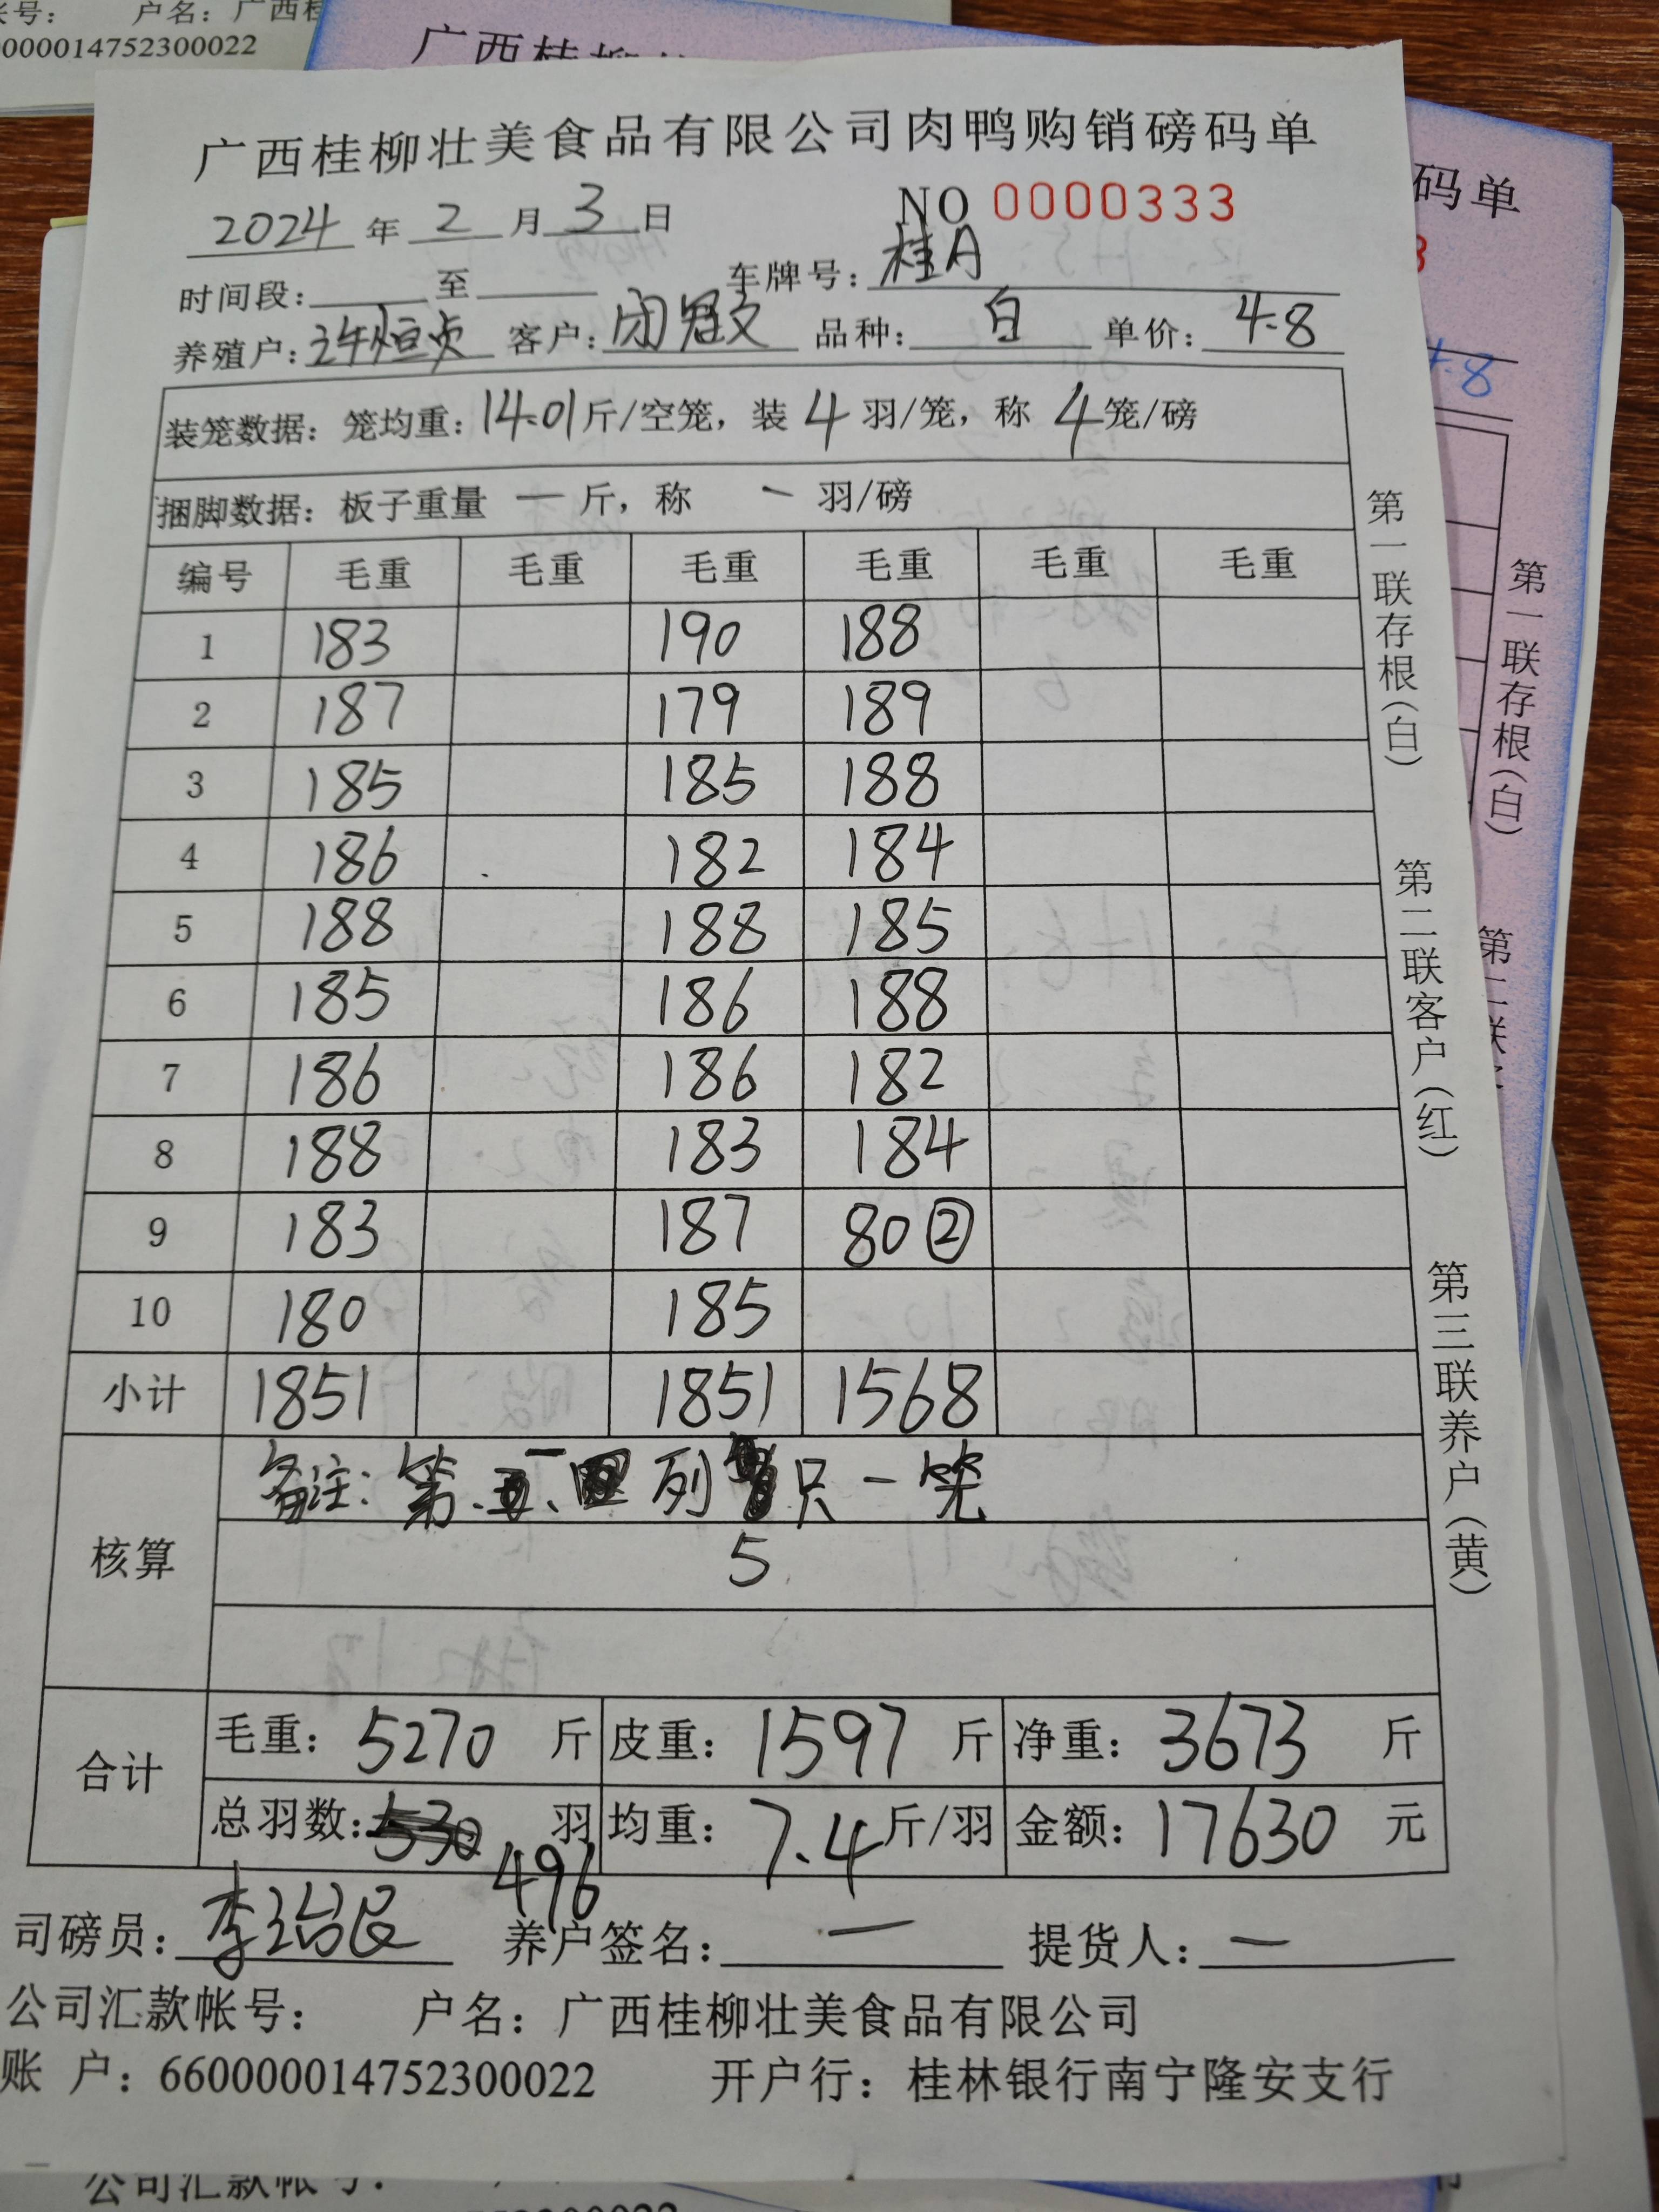 长号： 户名：广西桂
0000014752300022
广西桂柳
广西桂柳壮美食品有限公司肉鸭购销磅码单
2024 年 2 月 3 日 NO 0000333
时间段： 至 车牌号：桂A
养殖户：许恒贞 客户： 品种：白 单价：4.8
装笼数据：笼均重：14.01斤/空笼，装 4 羽/笼，称 4 笼/磅
捆脚数据：板子重量 一 斤，称 一 羽/磅
编号 毛重 毛重 毛重 毛重 毛重 毛重
1 183 190 188
2 187 179 189
3 185 185 188
4 186 182 184
5 188 188 185
6 185 186 188
7 186 186 182
8 188 183 184
9 183 187 80②
10 180 185
小计 1851 1851 1568
核算
备注：第 一 列 只一笼
5
合计
毛重：5270 斤 皮重：1597 斤 净重：3673 斤
总羽数：530 羽 均重：7.4 斤/羽 金额：17630 元
496
司磅员：李治民 养户签名：一 提货人：一
公司汇款帐号： 户名：广西桂柳壮美食品有限公司
账 户：660000014752300022 开户行：桂林银行南宁隆安支行
第一联存根（白）
第二联客户（红）
第三联养户（黄）
码单
4.8
第一联存根（白）
第二联
公司汇款帐号：